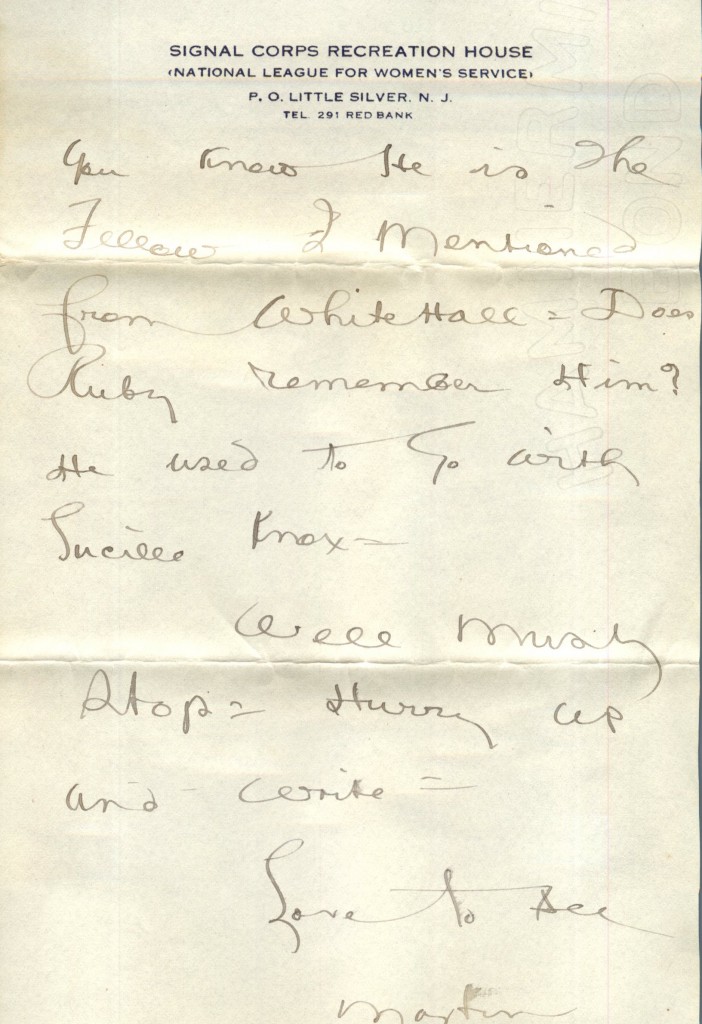 SIGNAL CORPS RECREATION HOUSE
(NATIONAL LEAGUE FOR WOMEN'S SERVICE)
P. O. LITTLE SILVER, N. J.
TEL. 291 RED BANK
You Know He is The
Fellow I Mentioned
from WhiteHall = Does
Ruby remember Him?
He used to Go with
Lucille Knox =
Well Must
Stop = Hurry up
and write =
Love to All
Martin
HAMMERMILL
BOND